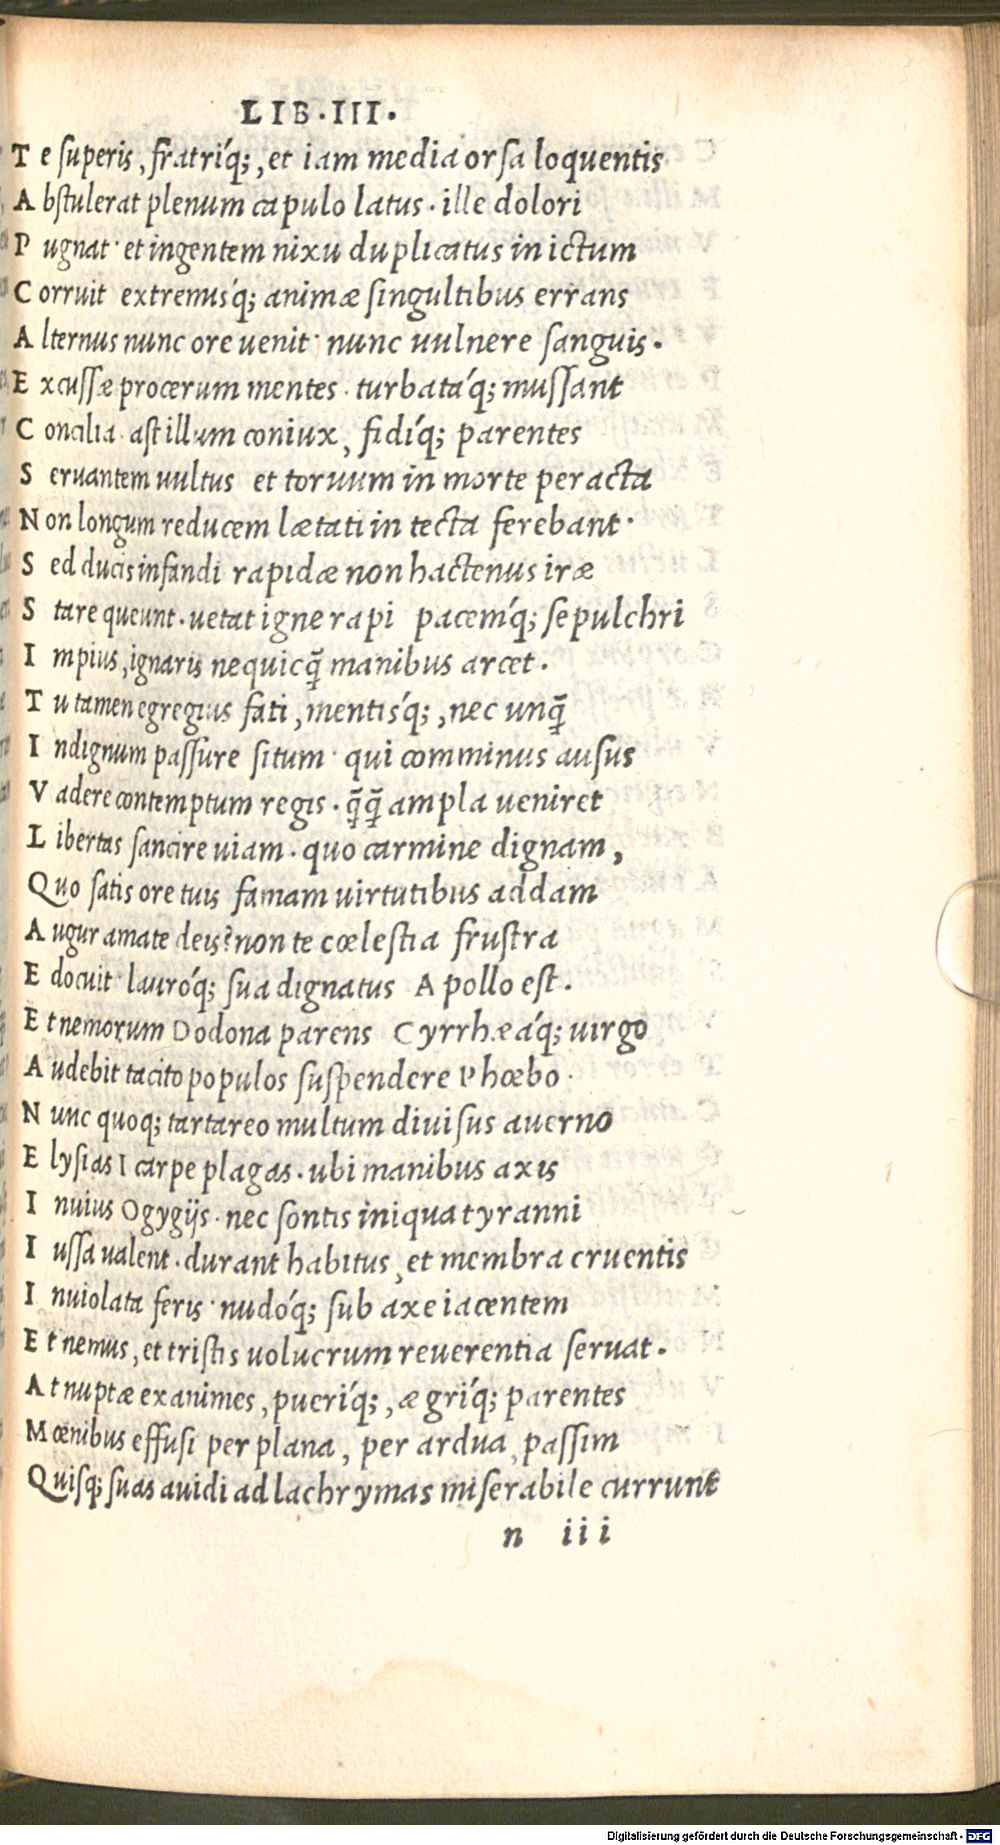 LIB.III.
T e superis, fratriq́;, et iam media orsa loquentis
A bstulerat plenum capulo latus. ille dolori
P ugnat. et ingentem nixu duplicatus in ictum
C orruit extremusq́; animæ singultibus errans
A lternus nunc ore uenit. nunc uulnere sanguis.
E xcussæ procerum mentes. turbataq́; mussant
C oncilia. ast illum coniux, fidiq́; parentes
S eruantem uultus et toruum in morte peracta
N on longum reducem lætati in tecta ferebant.
S ed ducis infandi rapidæ non hactenus iræ
S tare queunt. uetat igne rapi pacemq́; sepulchri
I mpius, ignaris nequicq̃ manibus arcet.
T u tamen egregius fati, mentisq́;, nec unq̃
I ndignum passure situm. qui comminus ausus
V adere contemptum regis. q̃q̃ ampla ueniret
L ibertas sancire uiam. quo carmine dignam,
Quo satis ore tuis famam uirtutibus addam
A ugur amate deis? non te cœlestia frustra
E docuit. lauroq́; sua dignatus Apollo est.
E t nemorum Dodona parens Cyrrhæaq́; uirgo
A udebit tacito populos suspendere Phœbo.
N unc quoq; tartareo multum diuisus auerno
E lysias I carpe plagas. ubi manibus axis
I nuius Ogygijs. nec sontis iniqua tyranni
I ussa ualent. durant habitus, et membra cruentis
I nuiolata feris. nudoq́; sub axe iacentem
E t nemus, et tristis uolucrum reuerentia seruat.
A t nuptæ exanimes, pueriq́;, ægriq́; parentes
M œnibus effusi per plana, per ardua, passim
Quisq; suas auidi ad lachrymas miserabile currunt
n iii
Digitalisierung gefördert durch die Deutsche Forschungsgemeinschaft - DFG